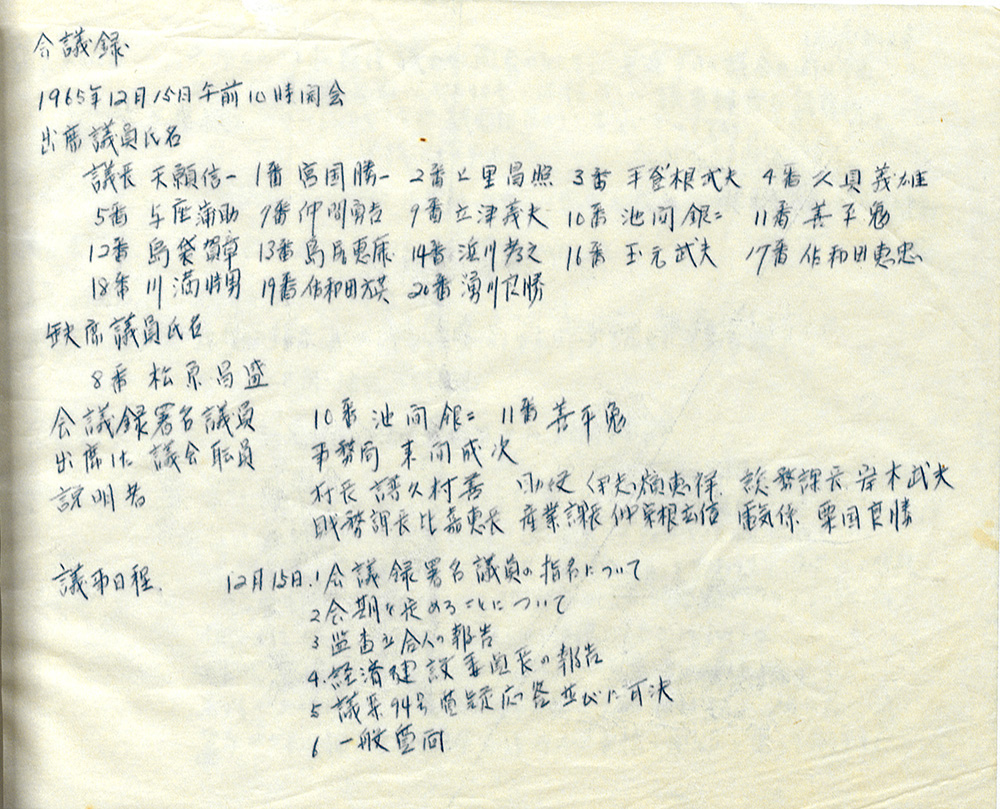 会議録
1965年12月15日午前10時開会
出席議員氏名
議長 天願信一 1番 宮国勝一 2番 上里昌照 3番 平食根武夫 4番 久貝義雄
5番 与座 7番 仲間勇吉 9番 立津義夫 10番 池間銀二 11番 善平勉
12番 島袋賀章 13番 島尻恵康 14番 浜川孝之 16番 玉元武夫 17番 佐和田恵忠
18番 川満時男 19番 佐和田 20番 湧川良勝
欠席議員氏名
8番 松原昌盛
会議録署名議員 10番 池間銀二 11番 善平勉
出席した議会職員 事務局 東間成次
説明者 村長 譜久村善 助役 伊志嶺恵祥 総務課長 武夫
財務課長 比嘉恵長 産業課長 仲宗根玄信 電気係 粟国良勝
議事日程. 12月15日.1 会議録署名議員の指名について
2 会期を定めることについて
3 監査立合人の報告
4.経済建設委員長の報告
5 議案94号質疑応答並びに可決
6 一般質問